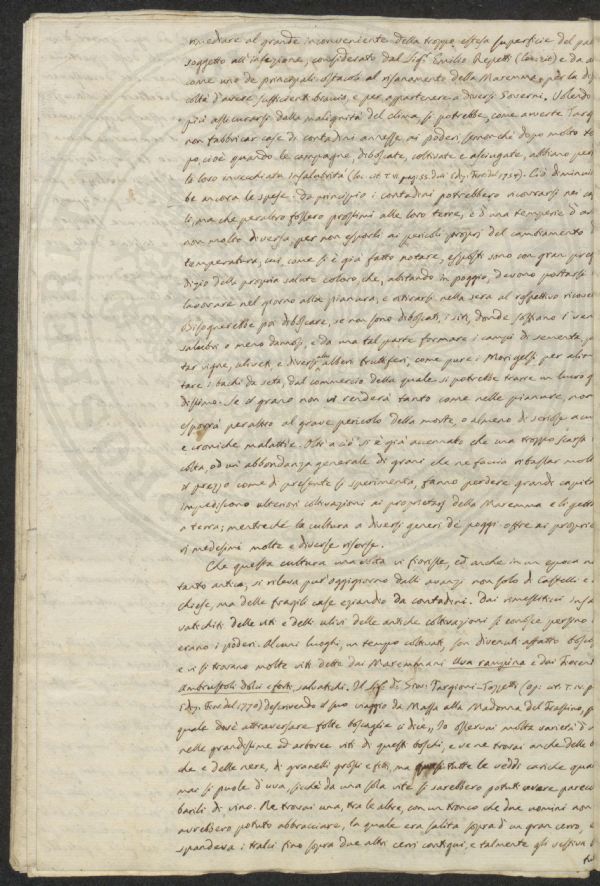 rimediare al grande inconveniente della troppo estesa superficie del pa
soggetto all'infezione, considerato dal Sig.r Emilio Repetti (Dizio) e da
come uno de principali ostacoli al risanamento della Maremma, per la di
coltà d'avere sufficienti braccia, e per appartenere a diversi Governi. Volendo
poi assicurarsi dalla malignità del clima, si potrebbe, come avverte Targ
non fabbricar case di contadini annesse ai poderi senonchè dopo molto te
po, cioè quando le campagne, diboscate, coltivate e asciugate, abbiano per
la loro invecchiata insalubrità (loc. cit. T. VI pag. 55.
Ciò diminui
be ancora le spese: da principio i contadini potrebbero ricovrarsi nei ca
li, ma che peraltro fossero prossimi alle loro terre, e d'una temperie d'a
non molto diversa per non esporli ai pericoli propri del cambiamento
temperatura, cui, come si è già fatto notare, esposti sono con gran preg
dizio della propria salute coloro che, abitando in poggio, devono portarsi
lavorare nel giorno alla pianura, e ritirarsi nella sera al rispettivo ricove
Bisognerebbe poi diboscare, se non sono diboscati, i siti, donde soffiano i ven
salubri o meno dannosi, e da una tal parte formare i campi di sementa, p
tar vigne, uliveti, e diversi altri alberi fruttiferi, come pure i Mori gelsi per alim
tare i bachi da seta, dal commercio della quale si potrebbe trarre un lucro g
dissimo. Se il grano non vi renderà tanto come nelle pianure, non
esporrà peraltro al grave pericolo della morte, o almeno di serie acu
e croniche malattie. Oltr a ciò si è già accennato che una troppo scarsa
colta, od un'abbondanza generale di grani che ne faccia ribassar molt
il prezzo come di presente si sperimenta, fanno perdere grandi capita
impediscono ulteriori coltivazioni ai proprietarj della Maremma e li getta
a terra; mentrechè la cultura a diversi generi de' poggi offre ai proprie
rj medesimi molte e diverse risorse.
Che questa cultura una volta vi fiorisse, ed anche in un epoca no
tanto antica, si rileva pur oggigiorno dalli avanzi non solo di Castelli e
chiese, ma delle fragili case eziandio da contadini. Dai rimessiticci insa
vatichiti delle viti e delli ulivi delle antiche coltivazioni si conosce persino
erano i poderi. Alcuni luoghi, un tempo coltivati, son divenuti affatto bosch
e vi si trovano molte viti dette dai Maremmani Uva ramina e dai Fiorent
ambrustoli dolci e forti, salvatichi. Il Sig.r D. Giov. Targioni-Tozzetti (op. cit. T. IV. p
descrivendo il suo viaggio da Massa alla Madonna del Frassino, p
quale dovè attraversare folte boscaglie ci dice „ Io osservai molta varietà d'u
nelle grandissime ed arboree viti di questi boschi, e ve ne trovai anche delle b
che e delle nere, di granelli grossi e fitti, ma quasi tutte le veddi cariche qua
mai si puole d'uva, sicchè da una sola vite si sarebbero potuti avere parecc
barili di vino. Ne trovai una, tra le altre, con un tronco che due uomini non
avrebbero potuto abbracciare, la quale era salita sopra d'un gran cerro, e
spandeva i tralci fino sopra due altri cerri contigui, e talmente gli vestiva